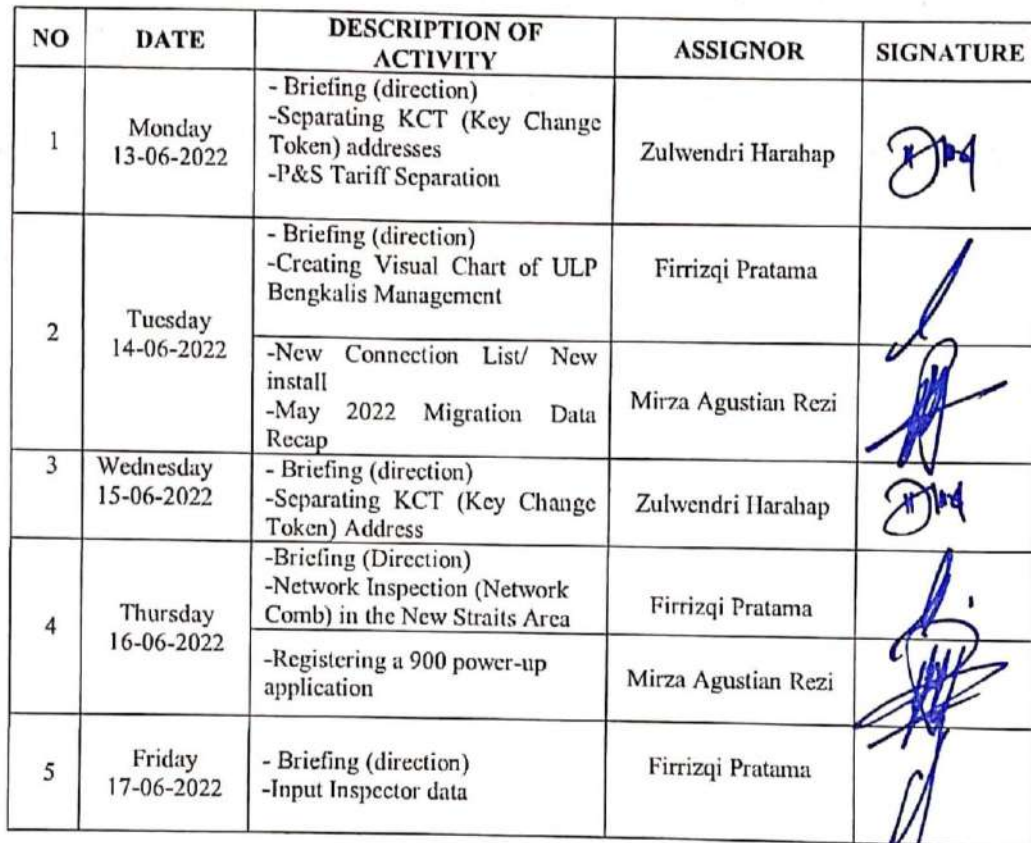 NO DATE DESCRIPTION OF ACTIVITY ASSIGNOR SIGNATURE
1
Monday
13-06-2022
- Briefing (direction)
-Separating KCT (Key Change
Token) addresses
-P&S Tariff Separation
Zulwendri Harahap
2
Tuesday
14-06-2022
- Briefing (direction)
-Creating Visual Chart of ULP
Bengkalis Management
Firrizqi Pratama
-New Connection List/ New
install
-May 2022 Migration Data
Recap
Mirza Agustian Rezi
3
Wednesday
15-06-2022
- Briefing (direction)
-Separating KCT (Key Change
Token) Address
Zulwendri Harahap
4
Thursday
16-06-2022
-Briefing (Direction)
-Network Inspection (Network
Comb) in the New Straits Area
Firrizqi Pratama
-Registering a 900 power-up
application
Mirza Agustian Rezi
5
Friday
17-06-2022
- Briefing (direction)
-Input Inspector data
Firrizqi Pratama